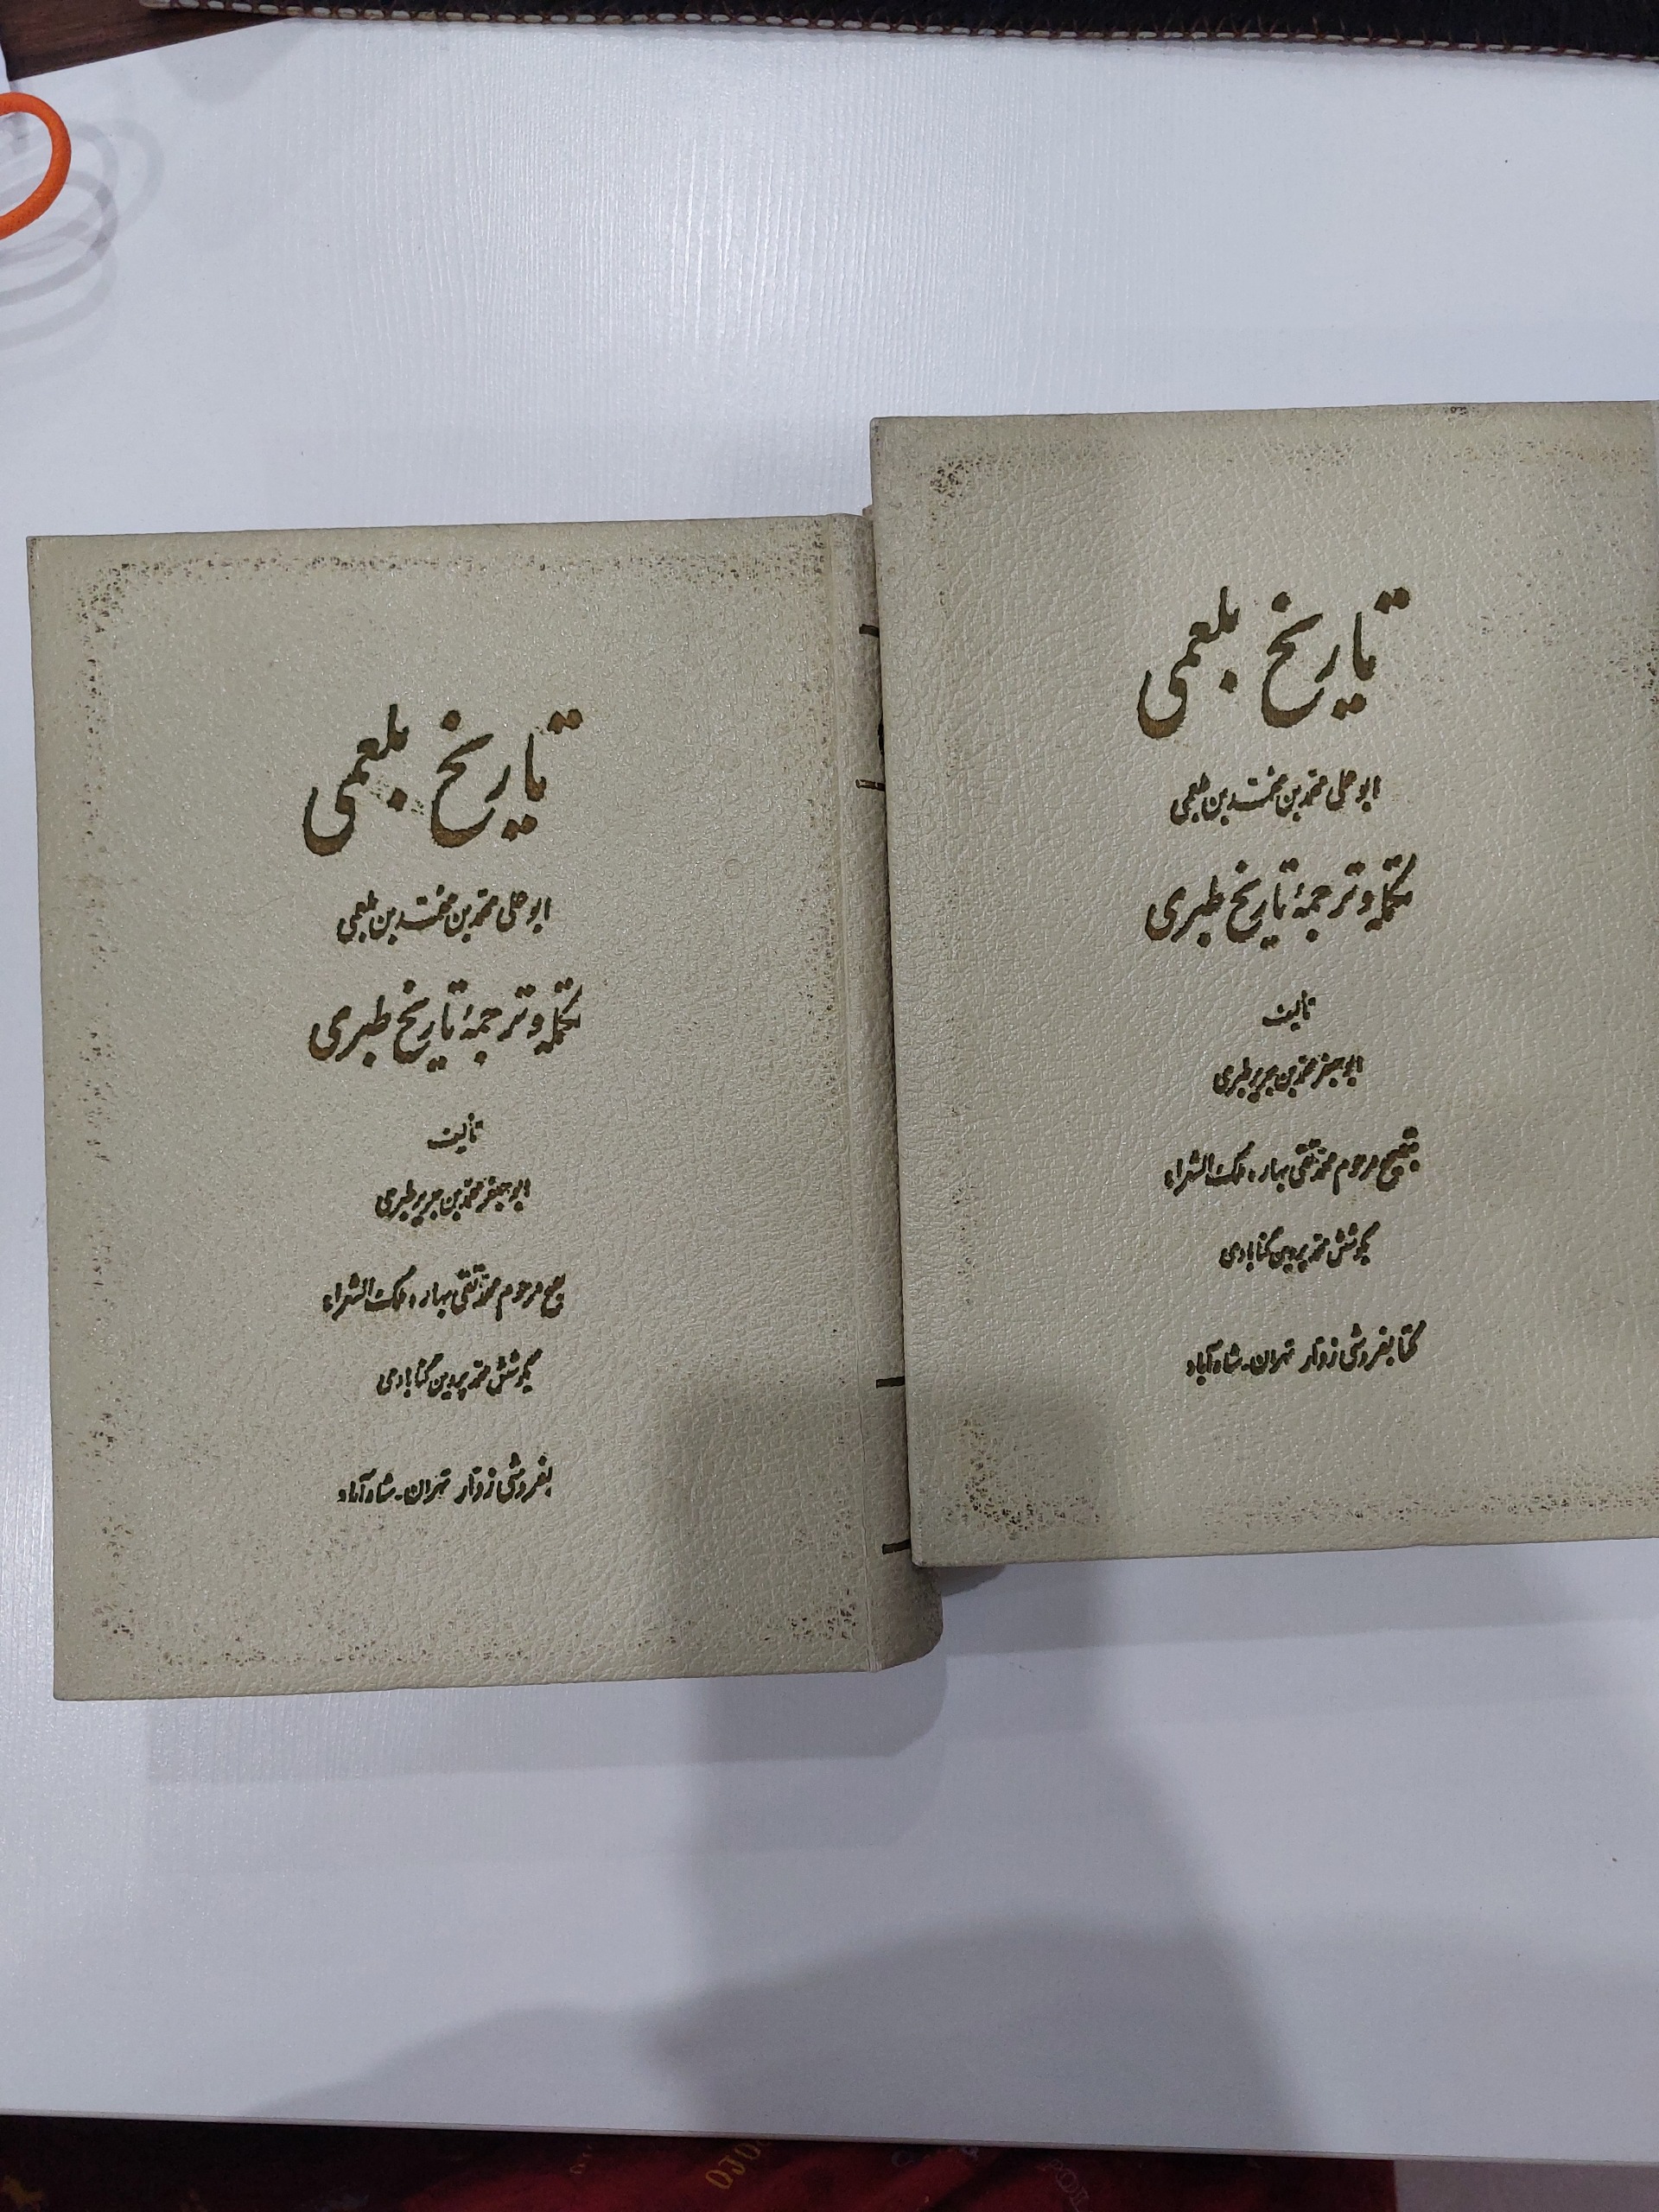 تاریخ بلعمی
ابوعلی محمد بن محمد بن بلعمی
تکمله و ترجمهٔ تاریخ طبری
تألیف
ابوجعفر محمد بن جریر طبری
بتصحیح مرحوم محمد تقی بهار، ملک الشعراء
بکوشش محمد پروین گنابادی
کتابفروشی زوّار تهران - شاه‌آباد
تاریخ بلعمی
ابوعلی محمد بن محمد بن بلعمی
تکمله و ترجمهٔ تاریخ طبری
تألیف
ابوجعفر محمد بن جریر طبری
مرحوم محمد تقی بهار، ملک الشعراء
بکوشش محمد پروین گنابادی
بفروشی زوّار تهران - شاه‌آباد